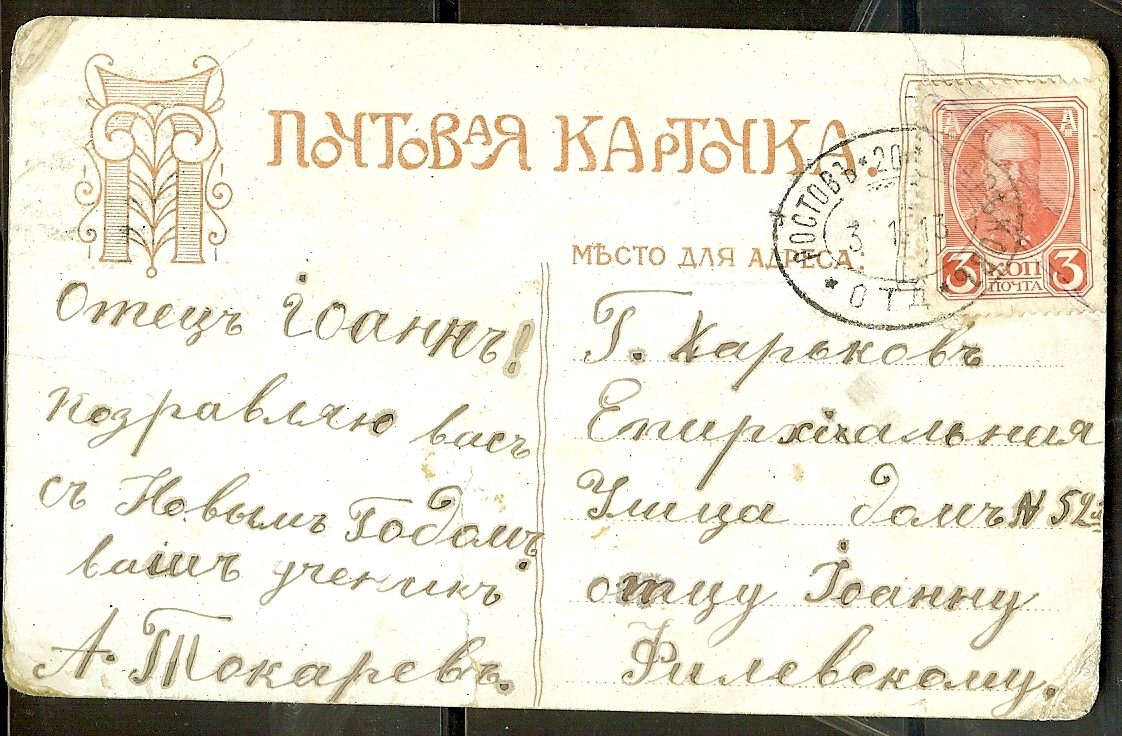 ПОЧТОВАЯ КАРТОЧКА.
МѢСТО ДЛЯ АДРЕСА:
РОСТОВЪ * 20
3 1 13
* ОТД *
А А
3 КОП 3
ПОЧТА
Отецъ Іоаннъ!
Козравляю васъ
съ Новымъ Годомъ
вашъ ученикъ
А. Токаревъ.
Г. Харьковъ
Епирхіальная
Улица домъ N 52й
отцу Іоанну
Филевскому.